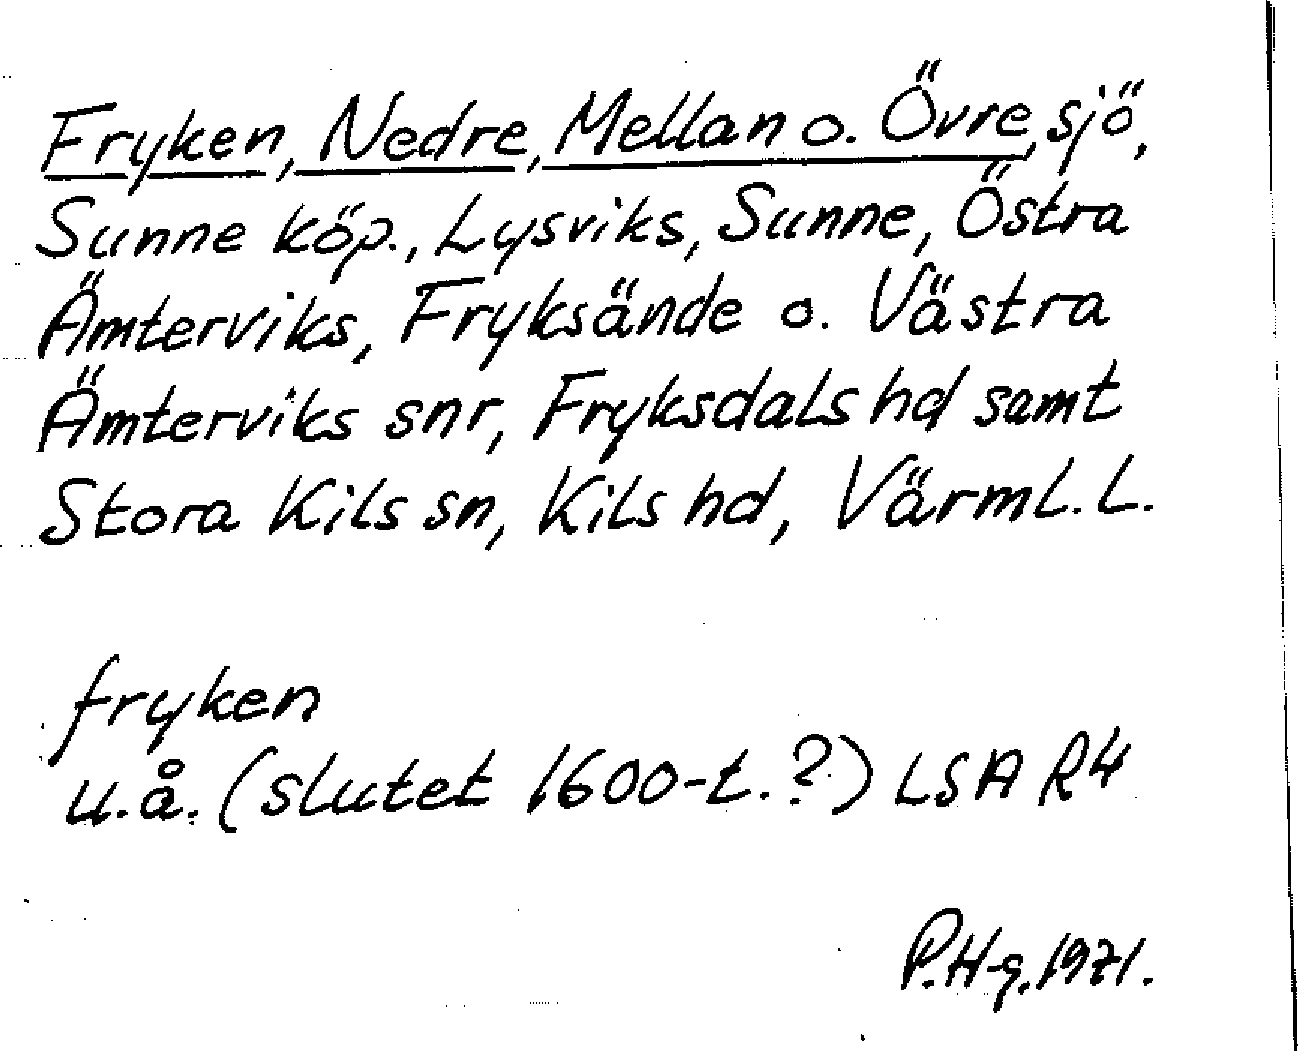 Fryken, Nedre, Mellan o. Övre, sjö,
Sunne köp., Lysviks, Sunne, Östra
Ämterviks, Fryksände o. Västra
Ämterviks snr, Fryksdals hd samt
Stora Kils sn, Kils hd, Värml. L.
fryken
u.å. (slutet 1600-t.?) LSA R4
P.H-g. 1971.